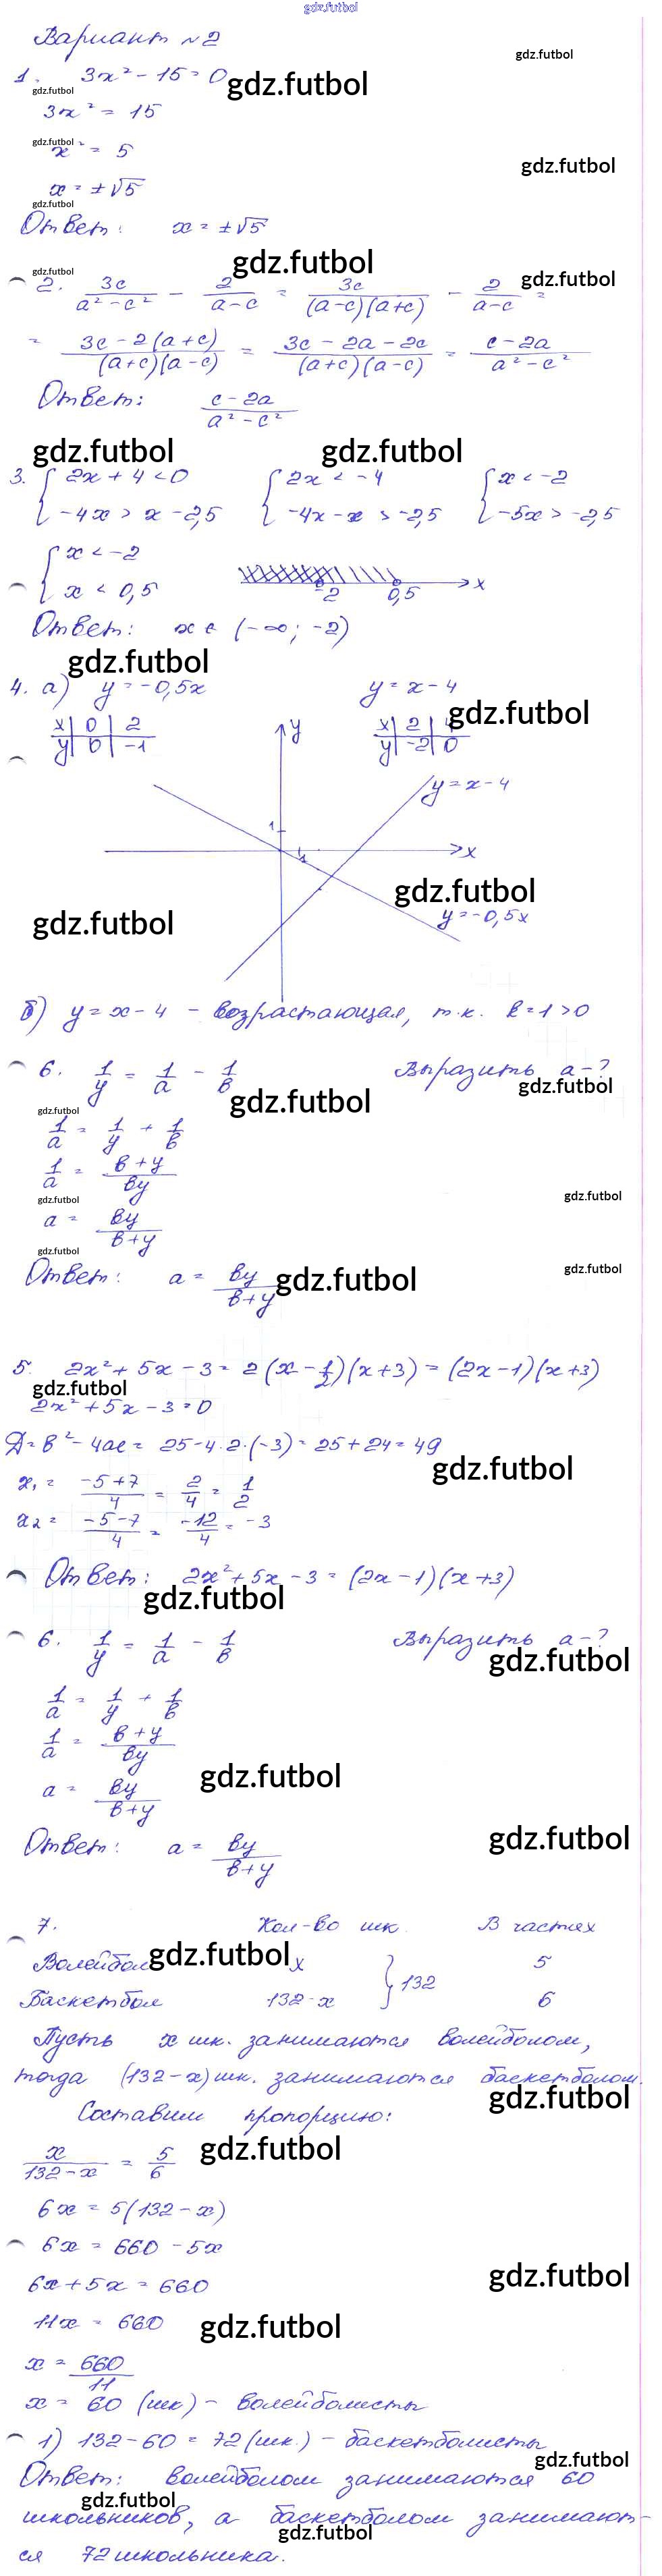 gdz.futbol
Вариант №2
gdz.futbol
1. 3x² - 15 = 0
gdz.futbol
gdz.futbol
3x² = 15
gdz.futbol
x² = 5
gdz.futbol
x = ±√5
gdz.futbol
Ответ: x = ±√5
gdz.futbol
gdz.futbol
gdz.futbol
2. 3c/(a² - c²) - 2/(a - c) = 3c/((a-c)(a+c)) - 2/(a-c) =
= (3c - 2(a+c))/((a+c)(a-c)) = (3c - 2a - 2c)/((a+c)(a-c)) = (c - 2a)/(a² - c²)
Ответ: (c - 2a)/(a² - c²)
gdz.futbol gdz.futbol
3. { 2x + 4 < 0 { 2x < -4 { x < -2
{ -4x > x - 2,5 { -4x - x > -2,5 { -5x > -2,5
{ x < -2
{ x < 0,5 -2 0,5 x
Ответ: x ∈ (-∞; -2)
gdz.futbol
4. а) y = -0,5x y = x - 4
gdz.futbol
x | 0 | 2 y x | 2 | 4
y | 0 | -1 y | -2 | 0
y = x - 4
1
1 x
gdz.futbol
gdz.futbol
y = -0,5x
б) y = x - 4 - возрастающая, т.к. k = 1 > 0
6. 1/y = 1/a - 1/в Выразить a - ?
gdz.futbol
gdz.futbol
gdz.futbol
1/a = 1/y + 1/в
1/a = (в + y)/вy
gdz.futbol
gdz.futbol
a = вy/(в + y)
gdz.futbol
gdz.futbol
Ответ: a = вy/(в + y)
gdz.futbol
5. 2x² + 5x - 3 = 2(x - 1/2)(x + 3) = (2x - 1)(x + 3)
gdz.futbol
2x² + 5x - 3 = 0
Д = в² - 4ac = 25 - 4·2·(-3) = 25 + 24 = 49
gdz.futbol
x₁ = (-5 + 7)/4 = 2/4 = 1/2
x₂ = (-5 - 7)/4 = -12/4 = -3
Ответ: 2x² + 5x - 3 = (2x - 1)(x + 3)
gdz.futbol
6. 1/y = 1/a - 1/в Выразить a - ?
gdz.futbol
1/a = 1/y + 1/в
1/a = (в + y)/вy
gdz.futbol
a = вy/(в + y)
gdz.futbol
Ответ: a = вy/(в + y)
7. Кол-во шк. В частях
Волейбол x } 132 5
gdz.futbol
Баскетбол 132 - x 6
Пусть x шк. занимаются волейболом,
тогда (132 - x) шк. занимаются баскетболом.
gdz.futbol
Составим пропорцию:
x/(132 - x) = 5/6
gdz.futbol
6x = 5(132 - x)
6x = 660 - 5x
gdz.futbol
6x + 5x = 660
11x = 660
gdz.futbol
x = 660/11
x = 60 (шк) - волейболисты
1) 132 - 60 = 72 (шк.) - баскетболисты
gdz.futbol
Ответ: волейболом занимаются 60
gdz.futbol
школьников, а баскетболом занимают-
gdz.futbol
ся 72 школьника.